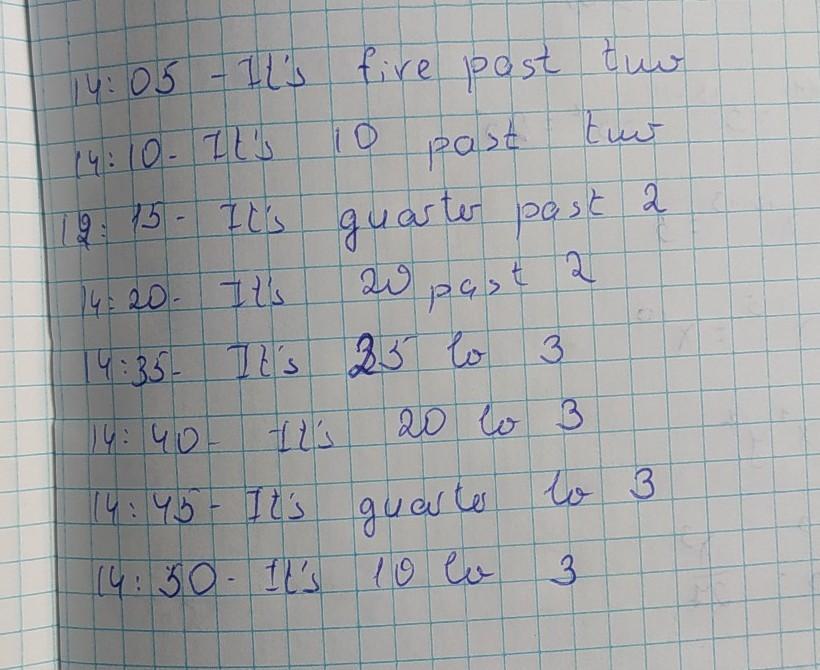 14:05 - It's five past two
14:10- It's 10 past two
12:15- It's quarter past 2
14:20- It's 20 past 2
14:35- It's 25 to 3
14:40- It's 20 to 3
14:45- It's quarter to 3
14:50- It's 10 to 3